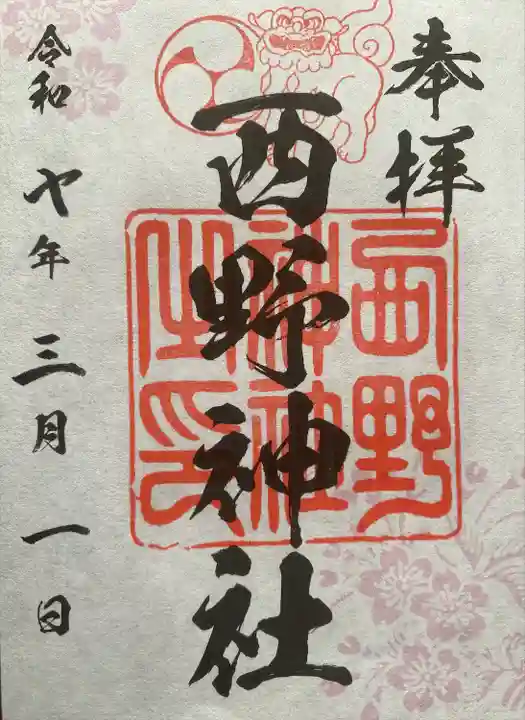 奉拝
西野神社
西野
神社
之印
令和 七年 三月 一日